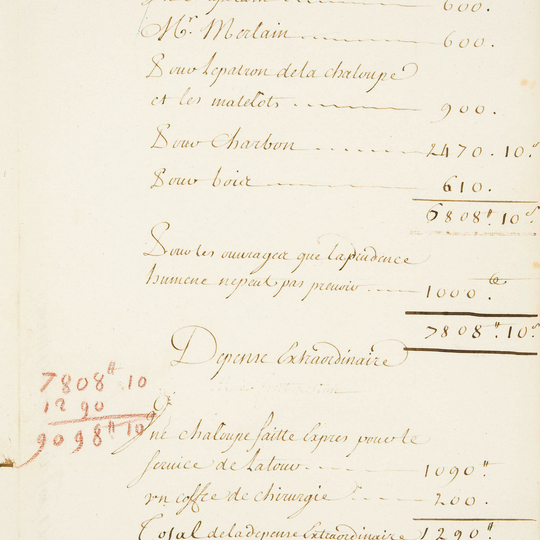 600.
Mr. Merlain 600.
Pour le patron de la chaloupe
et les matelots 900.
Pour Charbon 2470. 10s
Pour bois 610.
6808tt. 10s.
Pour les ouvrages que la prudence
humene ne peut pas prevoir 1000.
7808tt. 10s.
Depense Extraordinaire
7808tt 10
1290
9098tt 10
Une chaloupe faitte Expres pour le
service de la tour 1090tt
un coffre de chirurgie 200.
Total de la depense Extraordinaire 1290tt